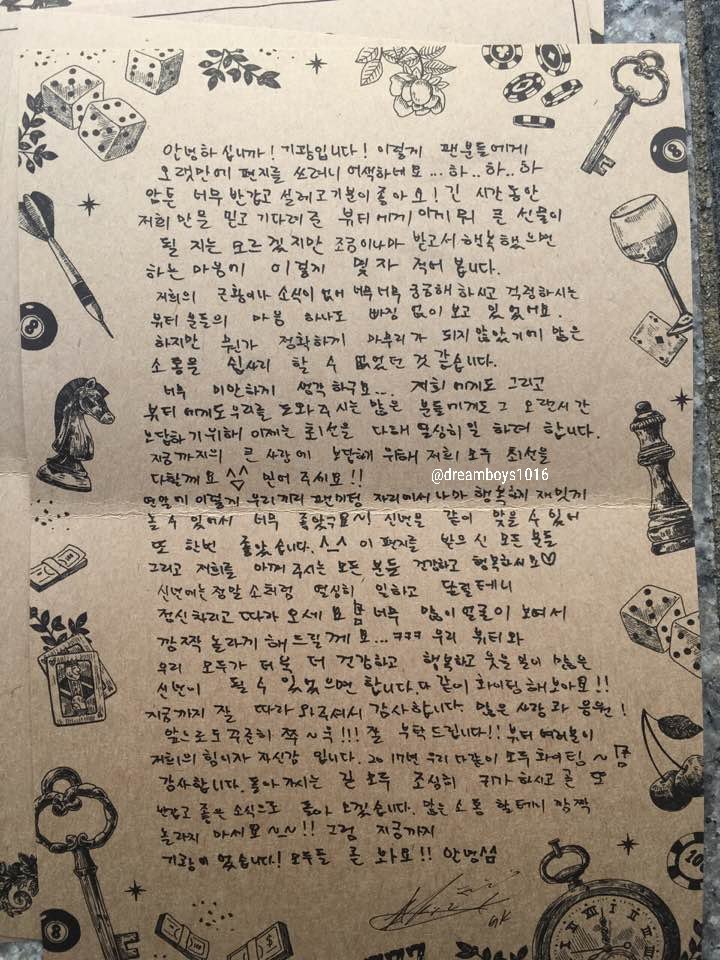 안녕하십니까! 기광입니다! 이렇게 팬분들에게
오랫만에 편지를 쓰려니 어색하네요... 하..하..하
암튼 너무 반갑고 설레고 기분이 좋아요! 긴 시간동안
저희만을 믿고 기다려준 뷰티에게 이게 뭐 큰 선물이
될 지는 모르겠지만 조금이나마 받고서 행복했으면
하는 마음에 이렇게 몇자 적어 봅니다.
저희의 근황이나 소식이 없어 너무너무 궁금해 하시고 걱정하시는
뷰티분들의 마음 하나도 빠짐 없이 보고 있었어요.
하지만 뭔가 정확하게 마무리가 되지 않았기에 많은
소통을 쉽사리 할 수 없었던 것 같습니다.
너무 미안하게 생각하구요... 저희에게도 그리고
뷰티에게도 우리를 도와주시는 많은 분들에게도 그 오랜시간
보답하기위해 이제는 최선을 다해 열심히 일 하려 합니다.
지금까지의 큰 사랑에 보답해 위해 저희 모두 최선을
다할께요 ^^ 믿어 주세요!!
@dreamboys1016
연말에 이렇게 우리끼리 팬미팅 자리에서나마 행복하게 재밌게
놀 수 있어서 너무 좋았구요~! 신년을 같이 맞을 수 있어
또 한번 좋았습니다. ^_^ 이 편지를 받으신 모든 분들
그리고 저희를 아껴 주시는 모든 분들 건강하고 행복하시요♡
신년에는 정말 소처럼 열심히 일하고 달릴테니
정신차리고 따라 오세요 너무 많이 얼굴이 보여서
깜짝 놀라게 해드릴께요...ㅋㅋㅋ 우리 뷰티와
우리 모두가 더욱 더 건강하고 행복하고 웃을 일이 많은
신년이 될 수 있었으면 합니다. 다 같이 화이팅해보아요!!
지금까지 잘 따라와주셔서 감사합니다 많은 사랑과 응원!
앞으로도 꾸준히 쭈~욱!!! 잘 부탁드립니다!! 뷰티여러분이
저희의 힘이자 자신감 입니다. 2017년 우리 다같이 모두 화이팅~
감사합니다. 돌아가시는 길 모두 조심히 귀가하시고 곧 또
반갑고 좋은 소식으로 돌아오겠습니다. 많은 소통 할테니 깜짝
놀라지 마세요~~!! 그럼 지금까지
기광이 였습니다! 모두들 곧 봐요!! 안녕섬
GK